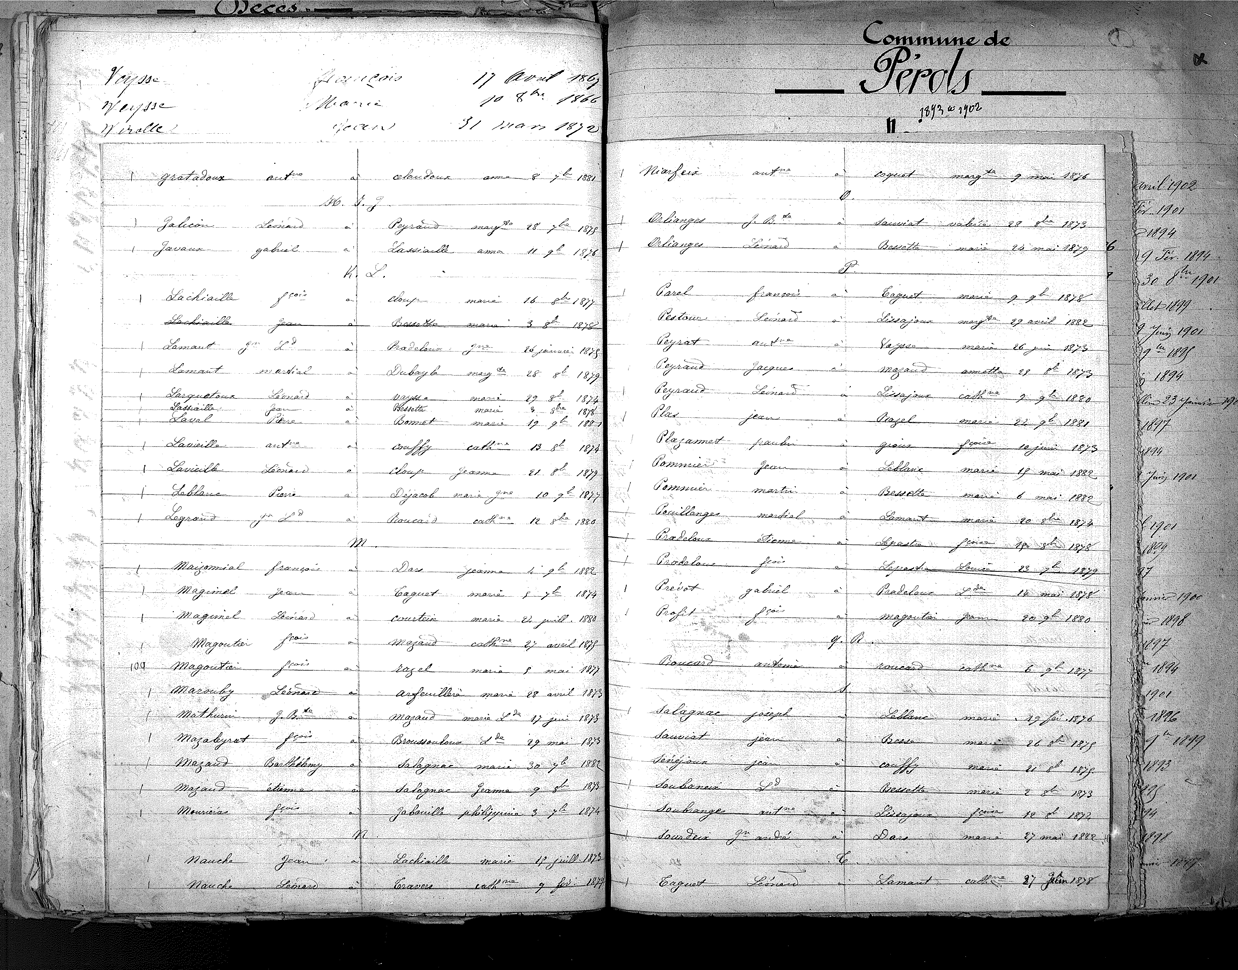 Décès.
Veysse François 17 Avril 1869
Veysse Marie 10 8bre 1866
Virolle Jean 31 Mars 1872
gratadoux antne à claudoux anna 8 7b 1881
H. I. J.
Jalicon Léonard à Peyraud margte 28 7bre 1875
Javaux gabriel à Lassiaille anna 11 9b 1876
K. L.
Lachiaille fçois à cloup marie 16 8bre 1877
Lachiaille jean à Bessette marie 3 8b 1878
Lamant gme Ld à Pradeloux gne 26 janvier 1875
Lamant martial à Dubayle margte 28 8b 1879
Lasquetoux Léonard à vaysse marie 29 8b 1874
Lassiaille jean à Bessette marie 3 8bre 1878
Laval Pierre à Bonnet marie 19 9b 1881
Lavieille antne à couffy cathne 13 8b 1874
Lavieille Léonard à cloup jeanne 21 8b 1879
Leblanc Pierre à Dejacob marie gne 10 9b 1877
Legrand gn Ld à Roucard cathne 12 8bre 1880
M.
Maizonnial françois à Dars jeanne 2 9b 1882
Maginel jean à Taguet marie 5 7b 1874
Maginel Léonard à courteix marie 24 juill. 1880
Magoutier fçois à Mazaud cathne 27 avril 1875
100 Magoutier fçois à razel marie 5 mai 1877
Marouby Léonard à arfeuillère marie 28 avril 1873
Mathurin J. Bte à Mazaud marie Lde 17 juin 1873
Mazaleyrat fçois à Broussouloux Lde 29 mai 1873
Mazaud Barthélémy à Salagnac marie 30 7b 1882
Mazaud étienne à Salagnac Jeanne 9 8b 1873
Mourieras fçois à Jabouille philippine 3 7b 1874
N
Nauche Jean à Lachiaille marie 12 juill 1873
Nauche Léonard à Travers cathne 9 fév 1874
Commune de
Pérols
1893 à 1902
Niarfeix antne à coquet margte 9 mai 1876
O.
Orlianges J. Bte à Sauviat valérie 28 8bre 1873
Orlianges Léonard à Bessette marie 24 mai 1879
P
Parel françois à Taguet marie 9 9b 1878
Pestour Léonard à Lissajoux margte 29 avril 1882
Peyrat antne à Vaysse marie 26 juin 1873
Peyraud Jacques à mazaud annette 28 8b 1873
Peyraud Léonard à Lissajoux cathne 9 9b 1880
Plas jean à Razel marie 22 9b 1881
Plazannet paulin à fçoise 10 juin 1873
Pommier Jean à Leblanc marie 19 mai 1882
Pommier martin à Bessette marie 6 mai 1882
Pouillanges martial à Lamant marie 20 8bre 1874
Pradeloux étienne à Lepastre fçoise 19 8bre 1878
Pradeloux fçois à Lepastre Louise 23 9b 1879
Prévot gabriel à Pradeloux Lde 14 mai 1878
Profit fçois à magoutier jeanne 20 9b 1880
Q. R.
Roucard antoine à roucard cathne 6 9b 1877
S
Salagnac joseph à Leblanc marie 29 fév 1876
Sauviat jean à Besse marie 26 8b 1875
Sénéjoux jean à couffy marie 21 8b 1875
Soubaneix Ld à Bessette marie 2 8b 1873
Soubranges antne à Lissajoux fçoise 12 8b 1872
Sourdeix gn andré à Dars marie 27 mai 1882
T
Taguet Léonard à Lamant cathne 27 Juin 1878
avril 1902
fév. 1901
1894
9 Fév. 1894
30 8bre 1901
1899
9 Juin 1901
9bre 1895
1894
23 Janvier
1897
1894
Juin 1901
1901
1894
1898
1897
1894
1901
1896
9bre 1899
1893
1898